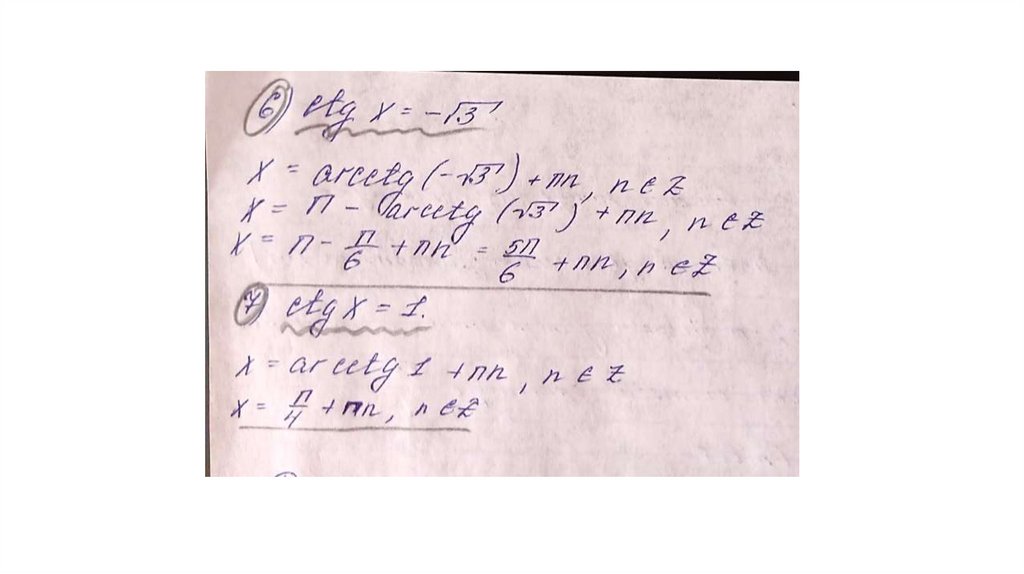 6) ctg x = -√3
x = arcctg (-√3) + πn, n ∈ Z
x = π - arcctg (√3) + πn, n ∈ Z
x = π - π/6 + πn = 5π/6 + πn, n ∈ Z
7) ctg x = 1.
x = arcctg 1 + πn, n ∈ Z
x = π/4 + πn, n ∈ Z